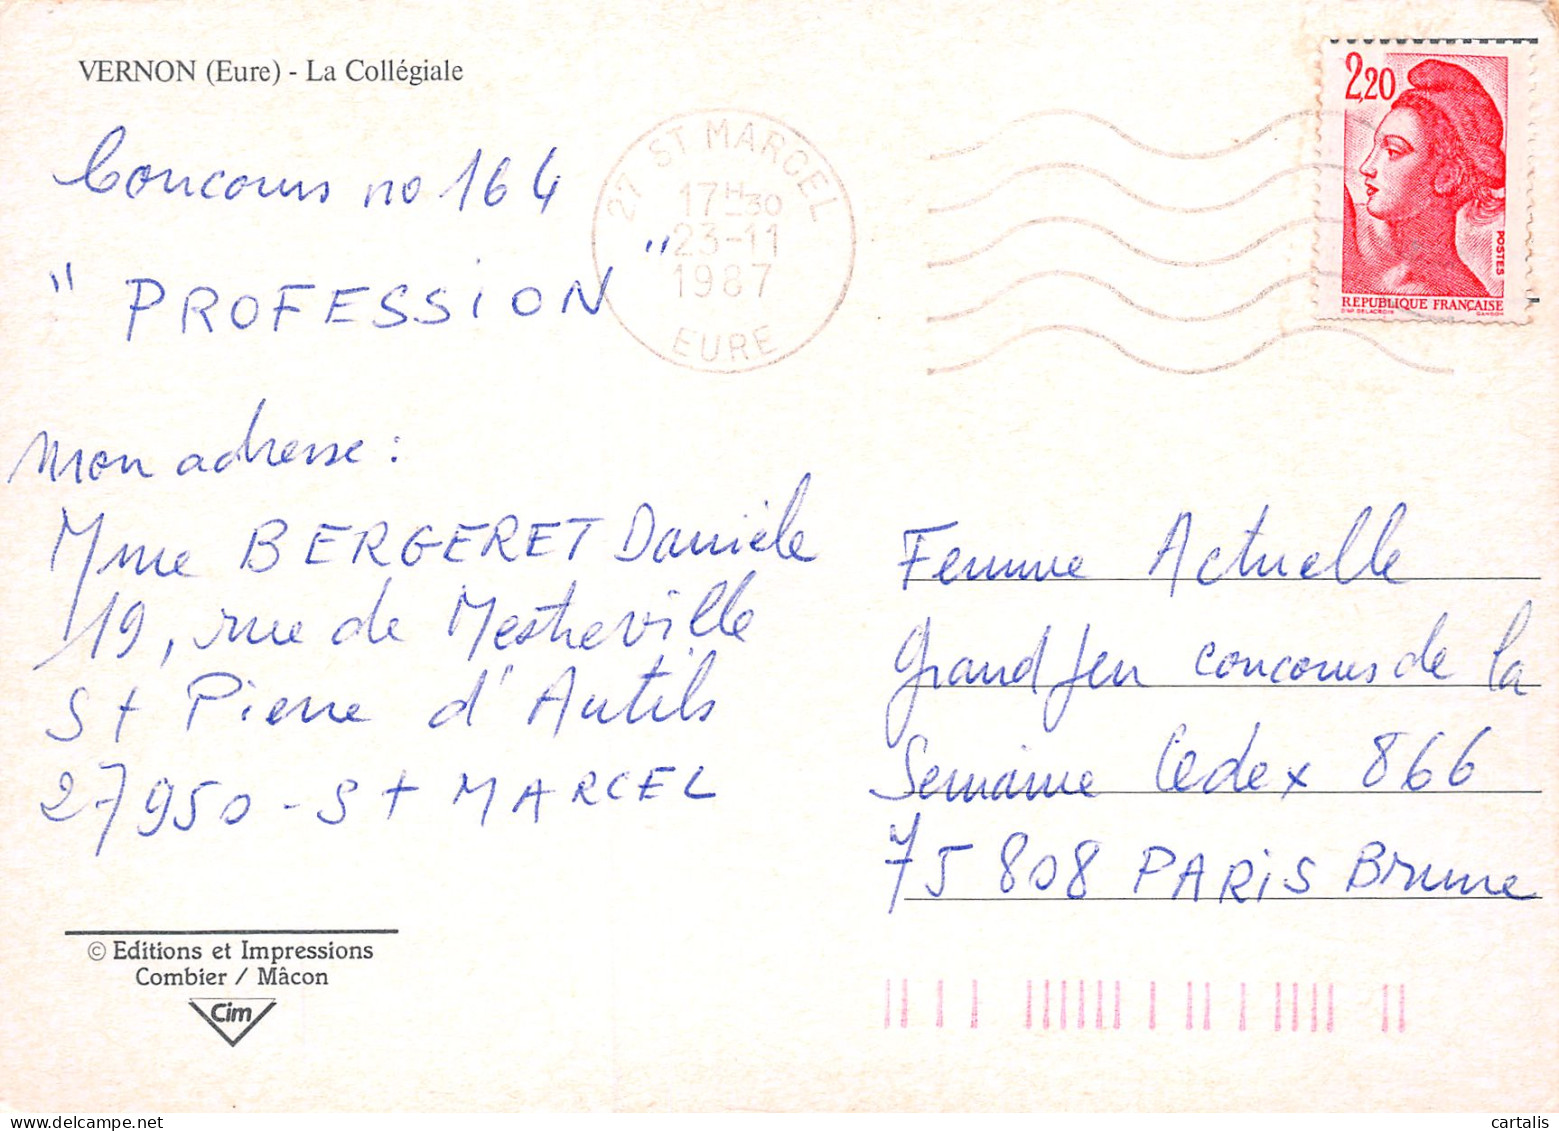 VERNON (Eure) - La Collégiale
Concours no 164
" PROFESSION "
Mon adresse :
Mme BERGERET Danièle
19, rue de Mestreville
St Pierre d'Autils
27950 - St MARCEL
© Editions et Impressions
Combier / Mâcon
Cim
27 ST MARCEL
17H30
23-11
1987
EURE
2,20
POSTES
REPUBLIQUE FRANÇAISE
D'AP. DELACROIX GANDON
Femme Actuelle
Grand Jeu concours de la
Semaine Cedex 866
75 808 PARIS Brune
cartalis